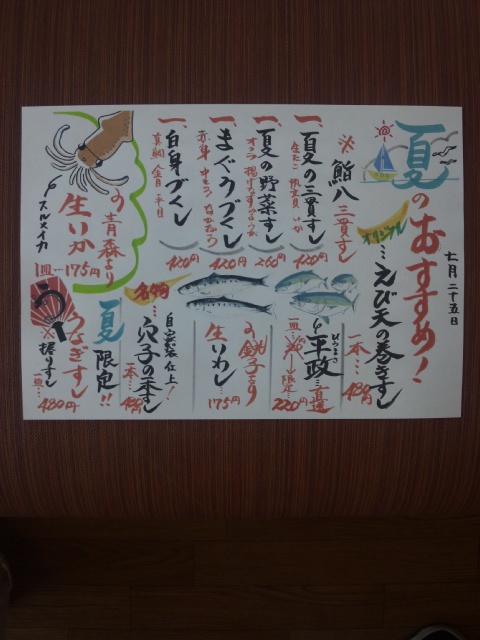 七月二十五日
夏のおすすめ！
オリジナル
…えび天の巻きすし
一本…480円
※鮨八三貫すし
一、夏の三貫すし
生たこ
いか
420円
一、夏の野菜すし
オクラ
260円
一、まぐろづくし
赤身
420円
一、白身づくし
真鯛
420円
の青森より
生いか
スルメイカ
1皿…175円
平政…直送
ひらまさ
一皿
限定…
220円
の銚子より
生いわし
…175円
自家製仕上！
名物
…穴子の一本すし
一本…480円
夏限定!!
う
うなぎすし
※握りすし
一皿…480円